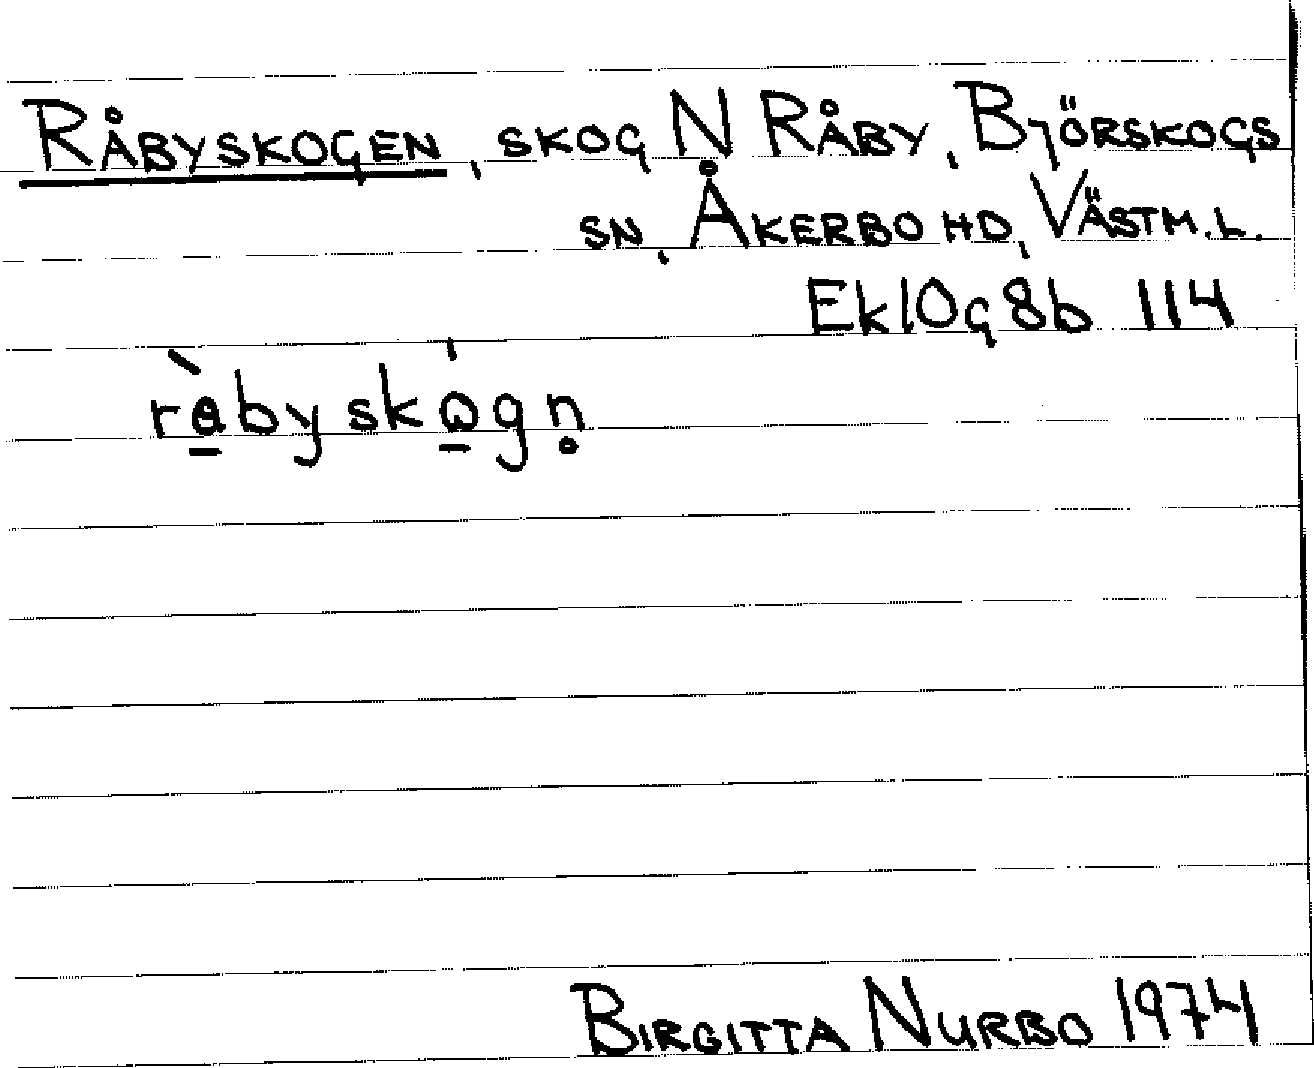 RÅBYSKOGEN, SKOG N RÅBY, BJÖRSKOGS
SN, ÅKERBO HD, VÄSTM.L.
Ek10g8b 114
BIRGITTA NURBO 1974